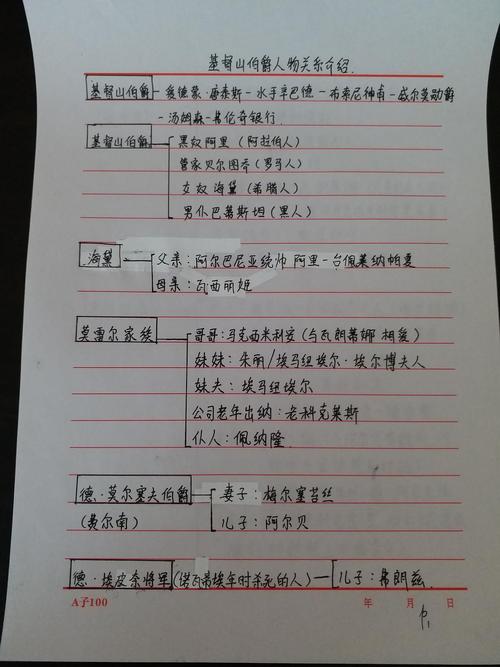 基督山伯爵人物关系介绍.
基督山伯爵-爱德蒙·唐泰斯-水手辛巴德-布索尼神甫-威尔莫勋爵
-汤姆森-弗伦奇银行.
基督山伯爵
黑奴阿里(阿拉伯人)
管家贝尔图乔(罗马人)
女奴海黛(希腊人)
男仆巴蒂斯坦(黑人)
海黛
父亲:阿尔巴尼亚统帅 阿里-台佩莱纳帕夏
母亲:瓦西丽姬
莫雷尔家族
哥哥:马克西米利安(与瓦朗蒂娜 相爱)
妹妹:朱丽/埃马纽埃尔·埃尔博夫人
妹夫:埃马纽埃尔
公司老年出纳:老科克莱斯
仆人:佩纳隆.
德·莫尔塞夫伯爵
(费尔南)
妻子:梅尔塞苔丝
儿子:阿尔贝
德·埃皮奈将军(诺瓦蒂埃年时杀死的人)
儿子:弗朗兹.
A子100
年 月 日
P1